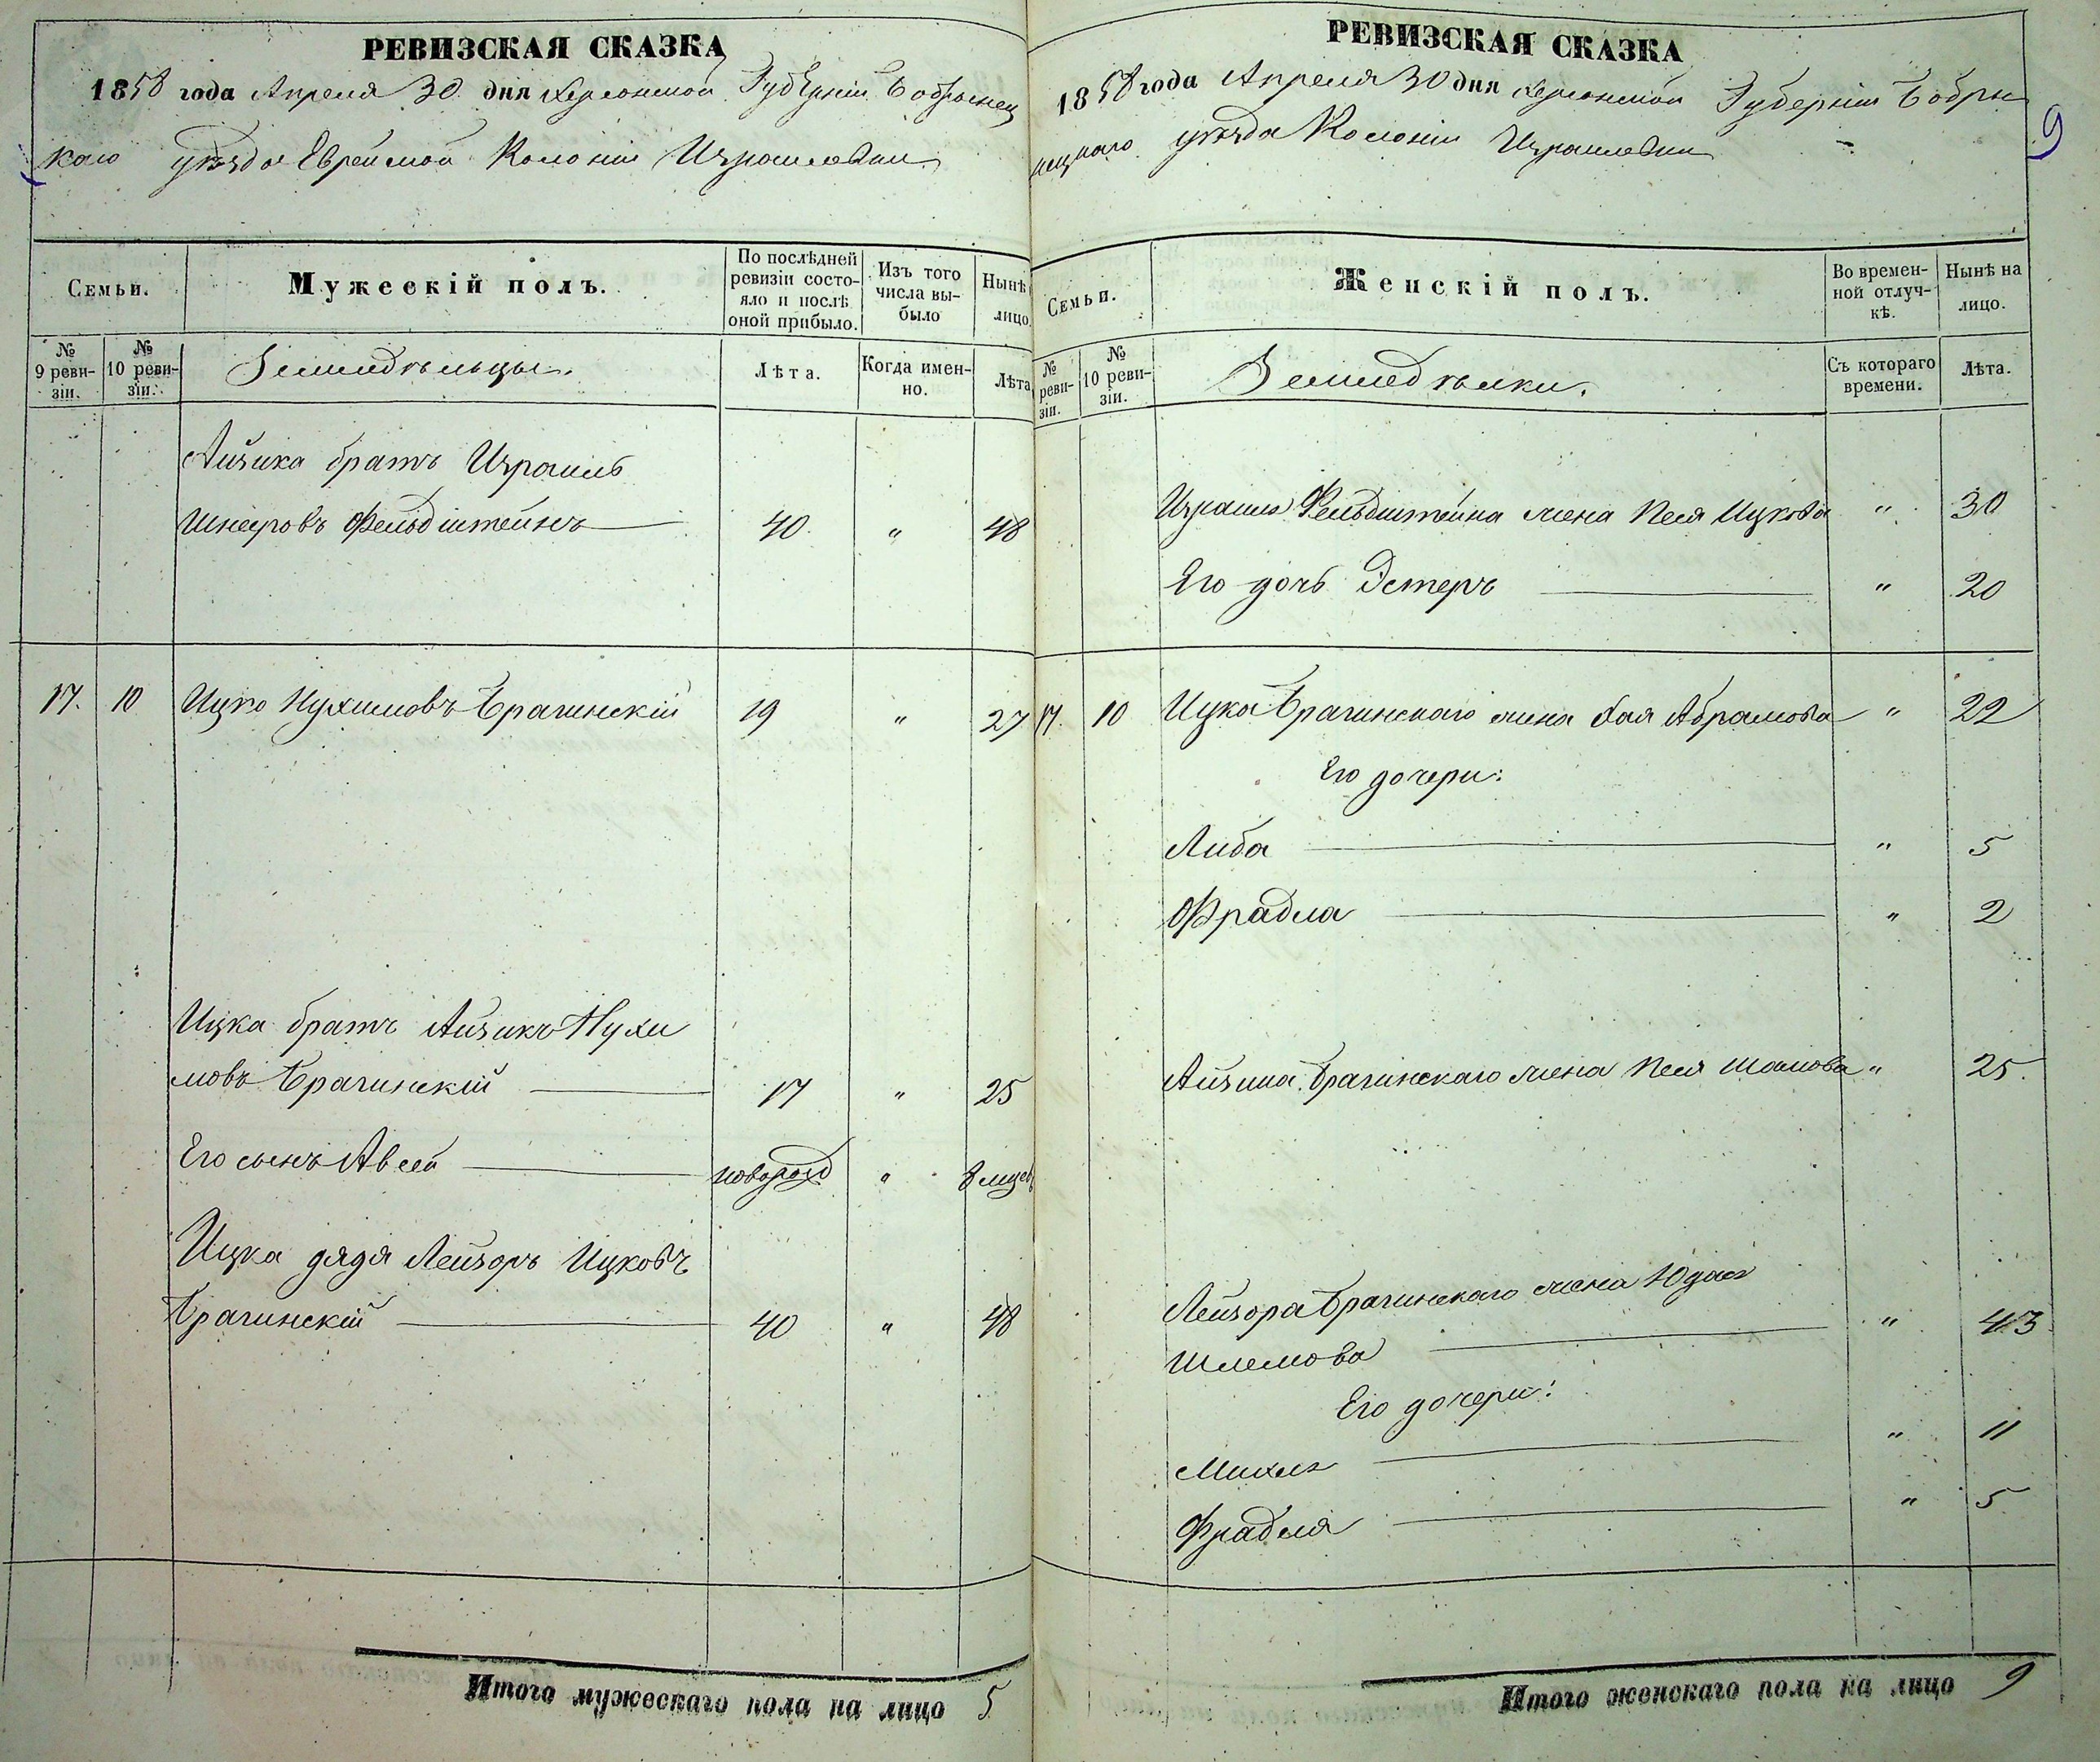 РЕВИЗСКАЯ СКАЗКА
1858 года Апреля 30 дня Херсонской Губерніи Бобринец
каго уѣзда Еврейской Колоніи Израилевки
Семьи.
Мужескій полъ.
По послѣдней ревизіи состояло и послѣ оной прибыло.
Изъ того числа выбыло
Нынѣ лицо.
№ 9 ревизіи.
№ 10 ревизіи.
Земледѣльцы.
Лѣта.
Когда именно.
Лѣта
Айзика братъ Израиль
Шнеуровъ Фельдштейнъ 40 " 48
17. 10 Ицко Нухимовъ Брагинскій 19 " 27
Ицка братъ Айзикъ Нухи
мовъ Брагинскій 17 " 25
Его сынъ Авсей новорожд " 8 мцевъ
Ицка дядя Лейзоръ Ицковъ
Брагинскій 40 " 48
Итого мужескаго пола на лицо 5
РЕВИЗСКАЯ СКАЗКА
9
1858 года Апреля 30 дня Херсонской Губерніи Бобри
нецкаго уѣзда Колоніи Израилевки
Семьи.
Женскій полъ.
Во временной отлучкѣ.
Нынѣ на лицо.
№ ревизіи.
№ 10 ревизіи.
Земледѣлки.
Съ котораго времени.
Лѣта.
Израиля Фельдштейна жена Песя Ицкова " 30
Его дочь Эстеръ " 20
17. 10 Ицка Брагинскаго жена Хая Абрамова " 22
Его дочери:
Либа " 5
Фрадля " 2
Айзика Брагинскаго жена Песя " 25.
Лейзора Брагинскаго жена
Шлемова " 43
Его дочери:
Михля " 11
Фрадля " 5
Итого женскаго пола на лицо 9